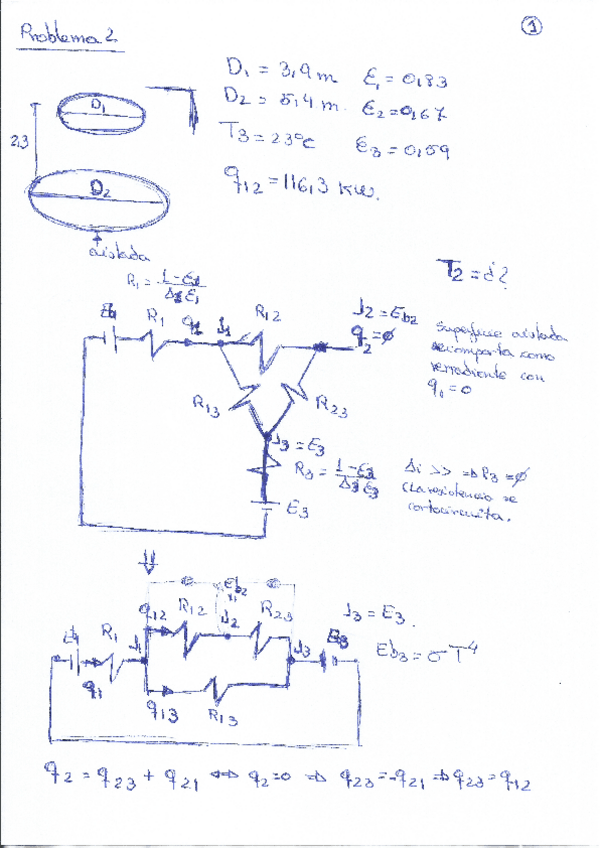 Problema 2
1
D1 = 3,9 m ε1 = 0,83
D2 = 5,4 m. ε2 = 0,67
T3 = 23ºC ε3 = 0,59
q12 = 116,3 kw.
D1
2,3
D2
aislada
T2 = ¿?
R1 = 1-ε1 / A1 ε1
R1 q1 J1 R12
J2 = Eb2
q2 = ∅
Superficie aislada
se comporta como
rerradiente con
qi = 0
R13 R23
J3 = E3
R3 = 1-ε3 / A3 ε3
Ai >> => R3 = ∅
(La resistencia se
cortocircuita.
E3
Eb2
q12 R12 J2 R23
J3 = E3.
R1 J1 J3
Eb3 = σT⁴
q1
q13 R13
q2 = q23 + q21 <=> q2=0 => q23 = -q21 => q23 = q12